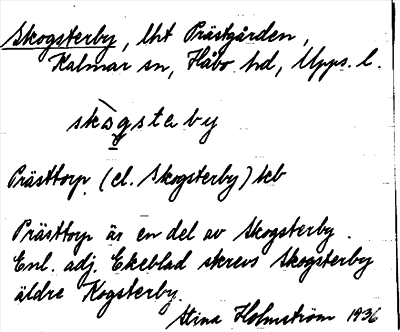 Skogsterby, lht Prästgården,
Kalmar sn, Håbo hd, Upps. l.
skògsteby
Prästtorp (el. Skogsterby) tcb
Prästtorp är en del av Skogsterby.
Enl. adj. Ekeblad skrevs Skogsterby
äldre Kogsterby.
Stina Holmström 1936